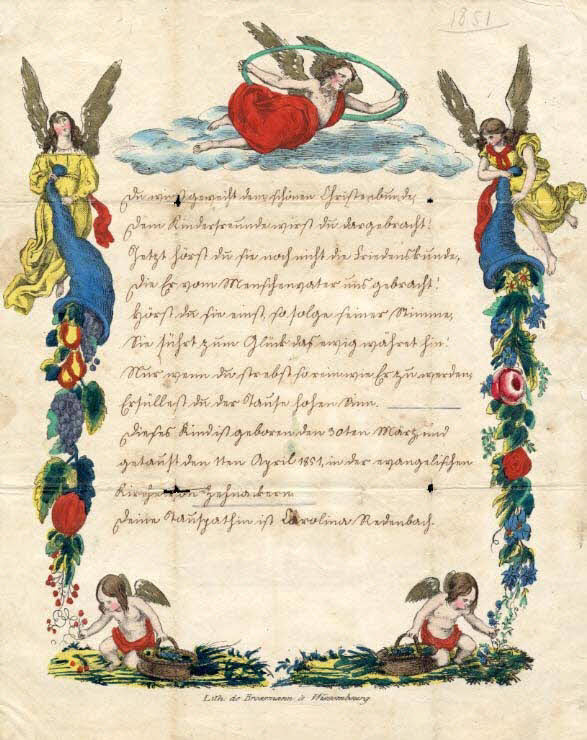 1851
Du wirst geweiht dem schönen Christenbunde,
Dem Kinderfreunde wirst du dargebracht!
Jetzt hörst du sie noch nicht die Friedenskunde,
Die Er vom Menschenvater uns gebracht!
Hörst du sie einst, so folge seiner Stimme,
Sie führt zum Glück das ewig währet hin!
Nur wenn du strebst so rein wie Er zu werden,
Erfüllest du der Taufe hohen Sinn.
Dieses Kind ist geboren den 30ten März und
getauft den 11ten April 1851, in der evangelischen
Kirche von
Deine Taufpathin ist Carolina Redenbach.
Lith. de Brosemann à Wissembourg